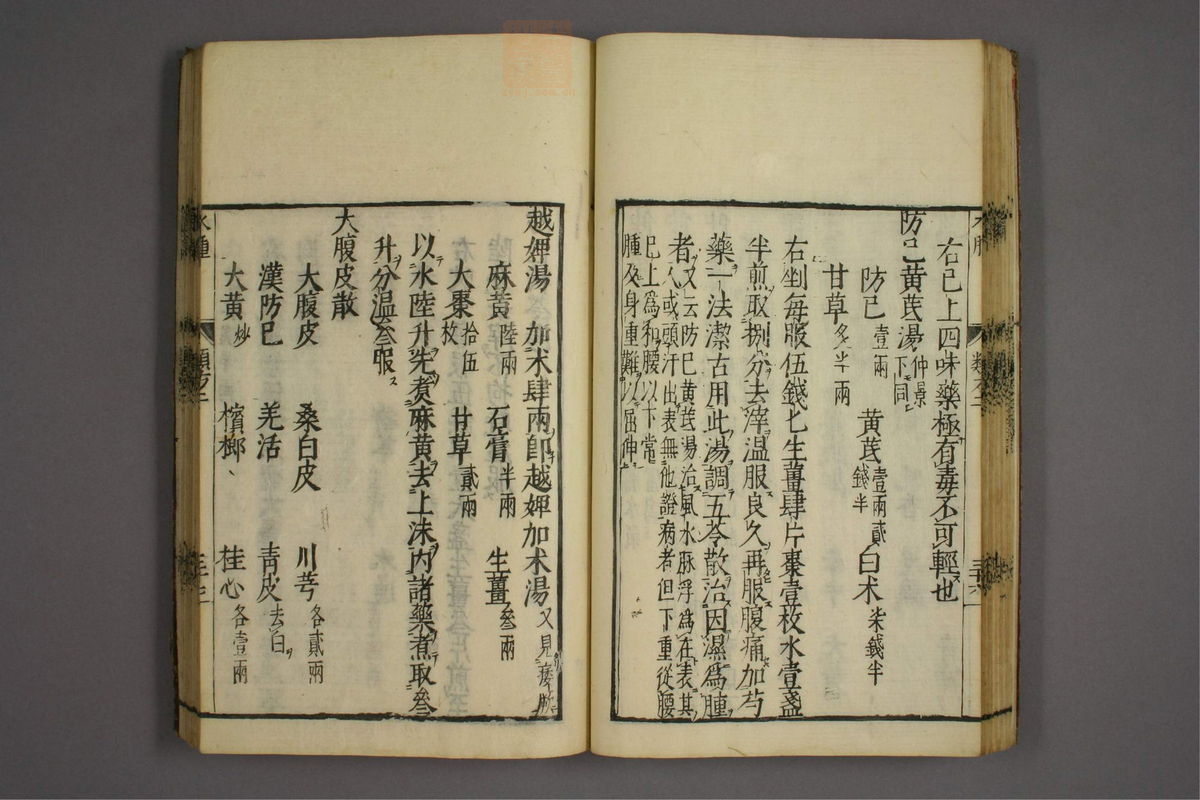 右已上四味藥極有毒不可輕也
防己黃芪湯 仲景下同
防己 壹兩 黃芪 壹兩貳錢半 白朮 柒錢半
甘草 炙半兩
右剉每服伍錢匕生薑肆片棗壹枚水壹盞
半煎取捌分去滓溫服良久再服腹痛加芍
藥一法潔古用此湯調五苓散治因濕爲腫
者又云防巳黃芪湯治風水脉浮爲在表其
人或頭汗出表無他證病者但下重從腰
巳上爲和腰以下當
腫及身重難以屈伸
越婢湯 加朮肆兩卽越婢加朮湯 又見痿
麻黃 陸兩 石膏 半兩 生薑 叄兩
大棗 拾伍枚 甘草 貳兩
以水陸升先煑麻黃去上沫內諸藥煮取叄
升分溫叄服
大腹皮散
大腹皮 桑白皮 川芎 各貳兩
漢防巳 羌活 青皮 去白
大黃 炒 檳榔 桂心 各壹兩
水腫 類方